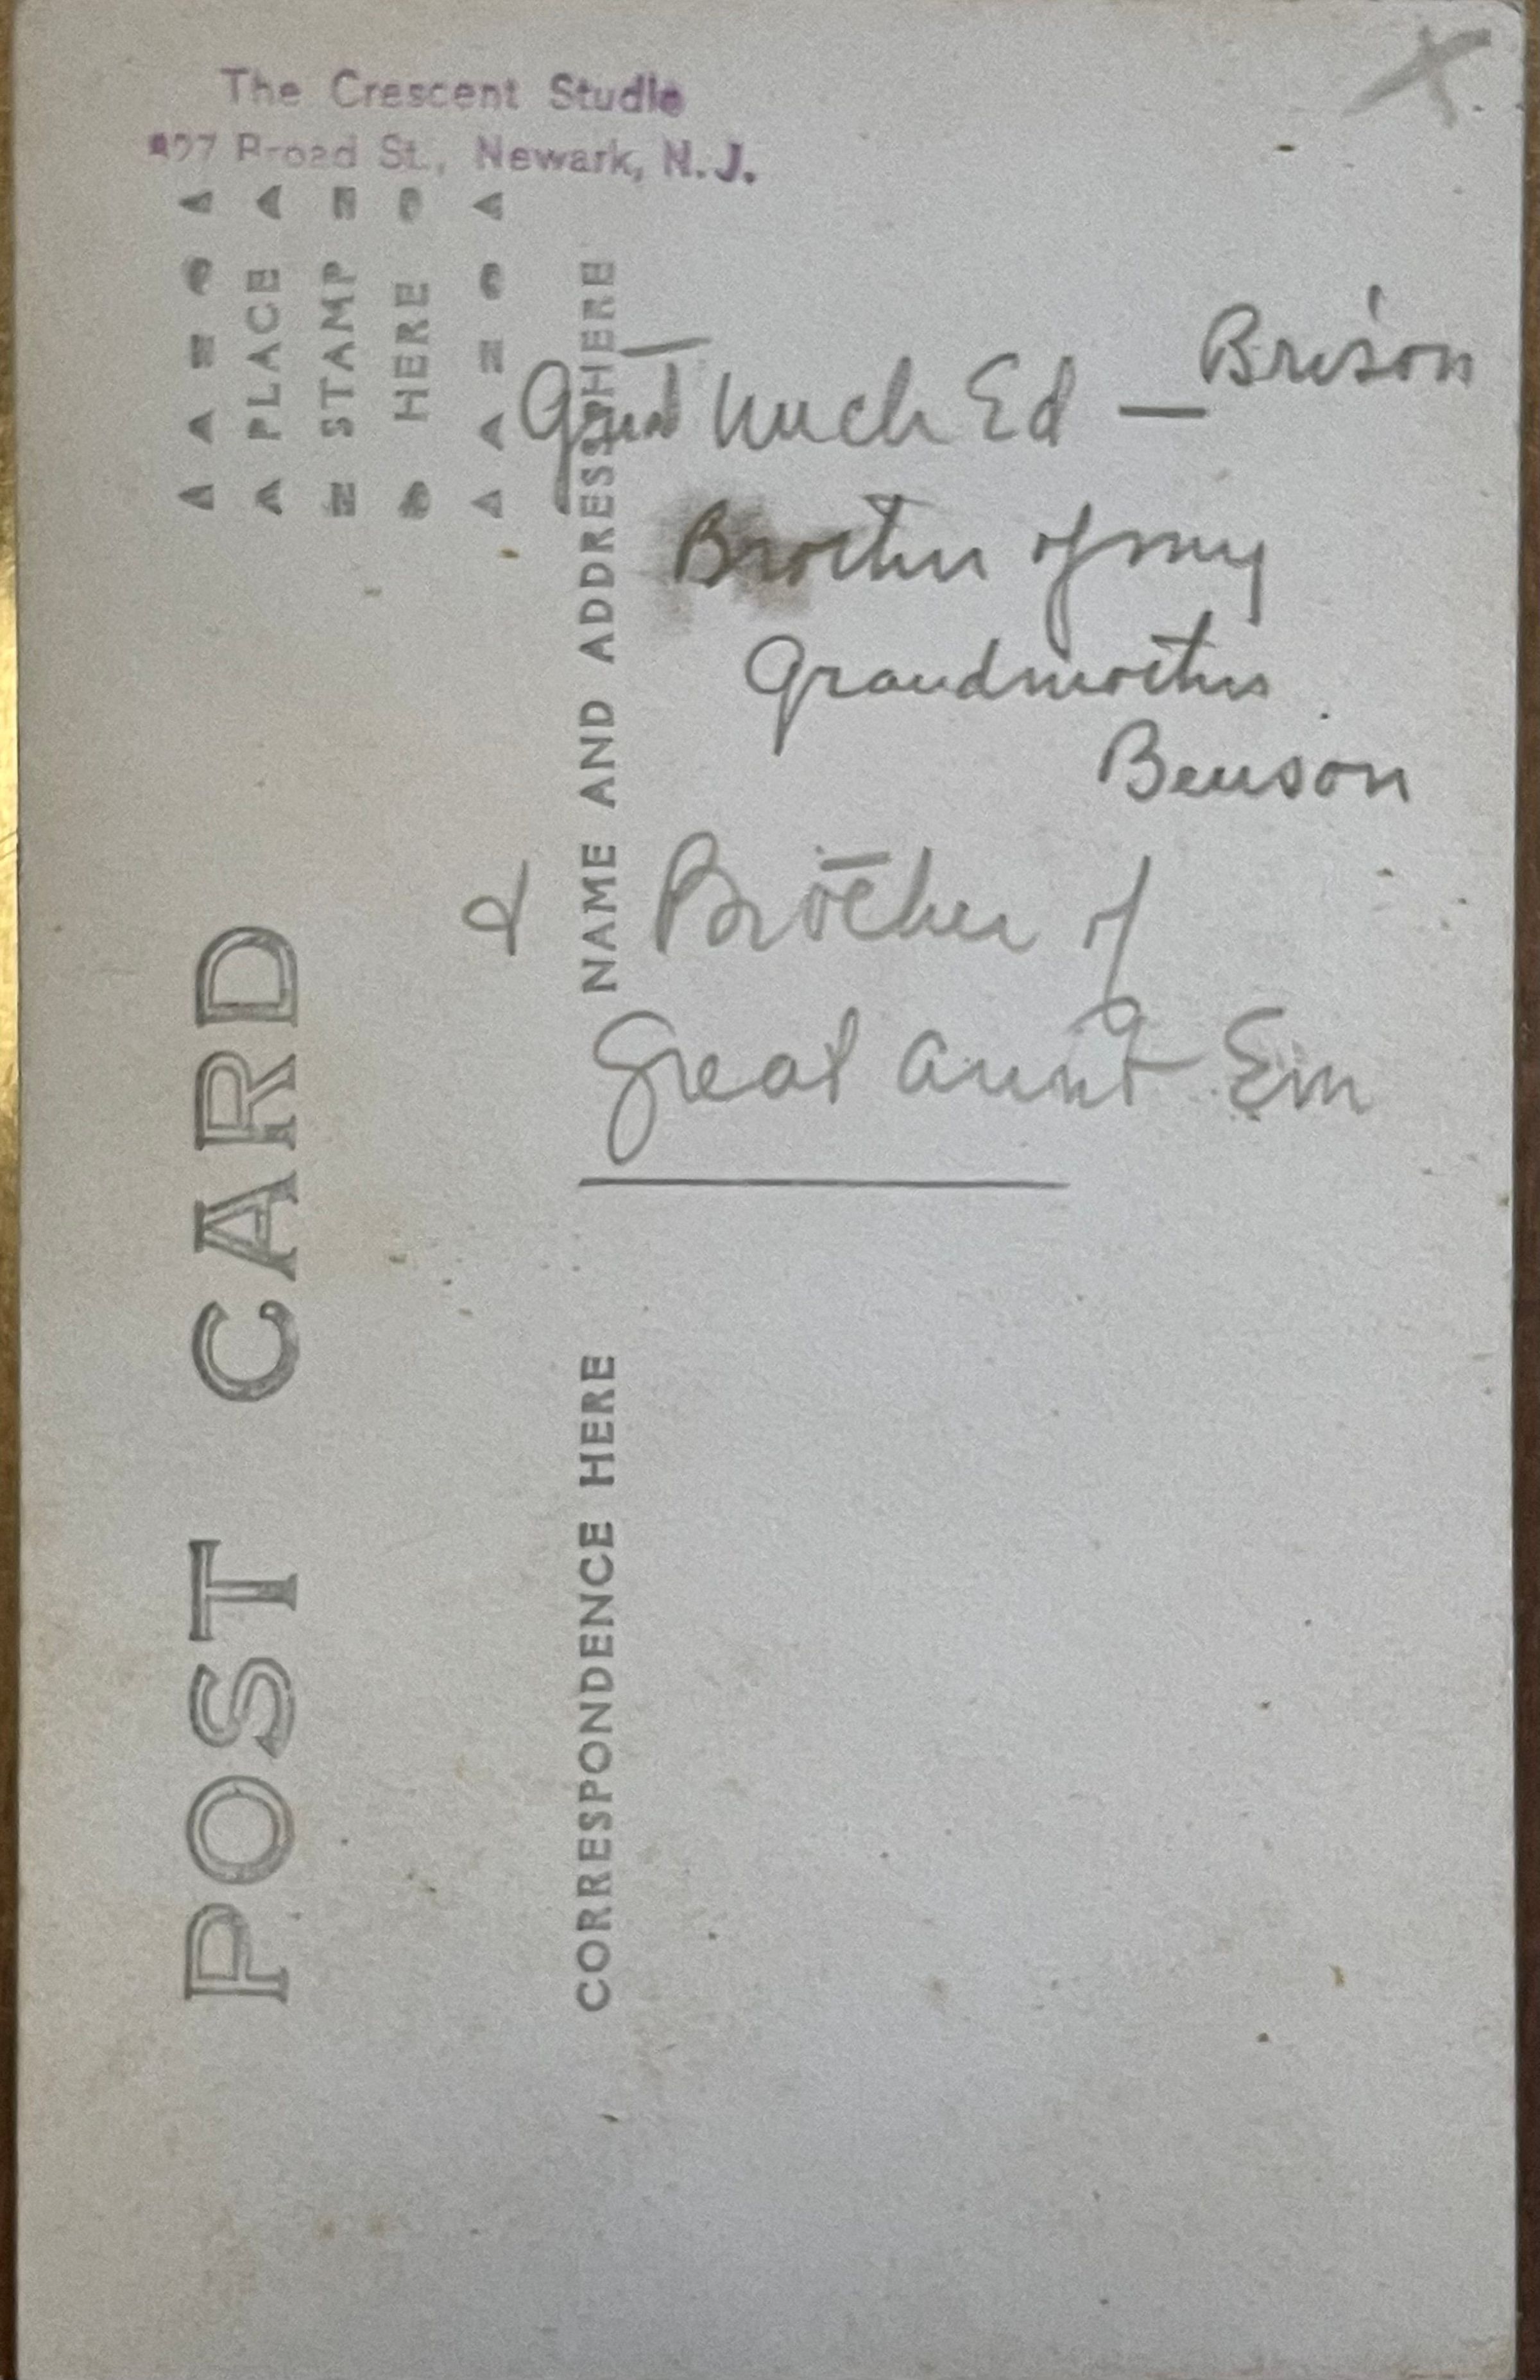 The Crescent Studio
Broad St., Newark, N.J.
PLACE
STAMP
HERE
Great Uncle Ed — Brison
Brother of my
Grandmother
Benson
& Brother of
Great Aunt Em
NAME AND ADDRESS HERE
POST CARD
CORRESPONDENCE HERE